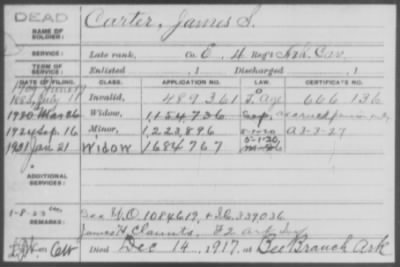 DEAD
NAME OF SOLDIER:
Carter, James S.
SERVICE:
Late rank, Co. E, 4 Reg't Ark Cav.
TERM OF SERVICE:
Enlisted , 1 Discharged , 1
DATE OF FILING. CLASS. APPLICATION NO. LAW. CERTIFICATE NO.
July 11 Invalid, 489361 Age 666136
1920 Mar 26 Widow, 1,154,736
1924 Sep 16 Minor, 1,223,896 5-1-20 a 3-3-27
1931 Jan 21 Widow 1684767 5-1-20,
ADDITIONAL SERVICES:
REMARKS:
See W.O. 1084619, + I.C. 339036
James H. Claunts. F2 Ark Inf
Died Dec 14, 1917, at Bee Branch Ark